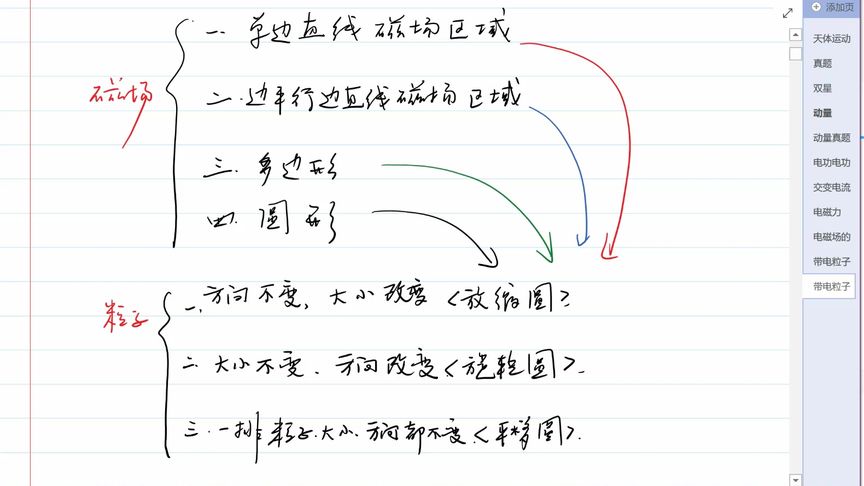 一. 单边直线磁场区域
磁场
二. 边平行边直线磁场区域
三. 多边形
四. 圆形
粒子
一. 方向不变, 大小改变<放缩圆>.
二. 大小不变. 方向改变<旋转圆>.
三. 一排粒子.大小.方向都不变.<平移圆>.
添加页
天体运动
真题
双星
动量
动量真题
电功电功
交变电流
电磁力
电磁场的
带电粒子
带电粒子